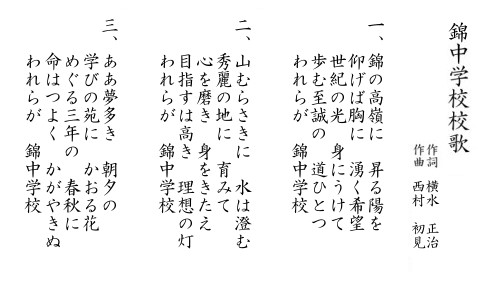 錦中学校校歌
作詞 横水 正治
作曲 西村 初見
一、錦の高嶺に 昇る陽を
仰げば胸に 湧く希望
世紀の光 身にうけて
歩む至誠の 道ひとつ
われらが 錦中学校
二、山むらさきに 水は澄む
秀麗の地に 育みて
心を磨き 身をきたえ
目指すは高き 理想の灯
われらが 錦中学校
三、ああ夢多き 朝夕の
学びの苑に かおる花
めぐる三年の 春秋に
命はつよく かがやきぬ
われらが 錦中学校